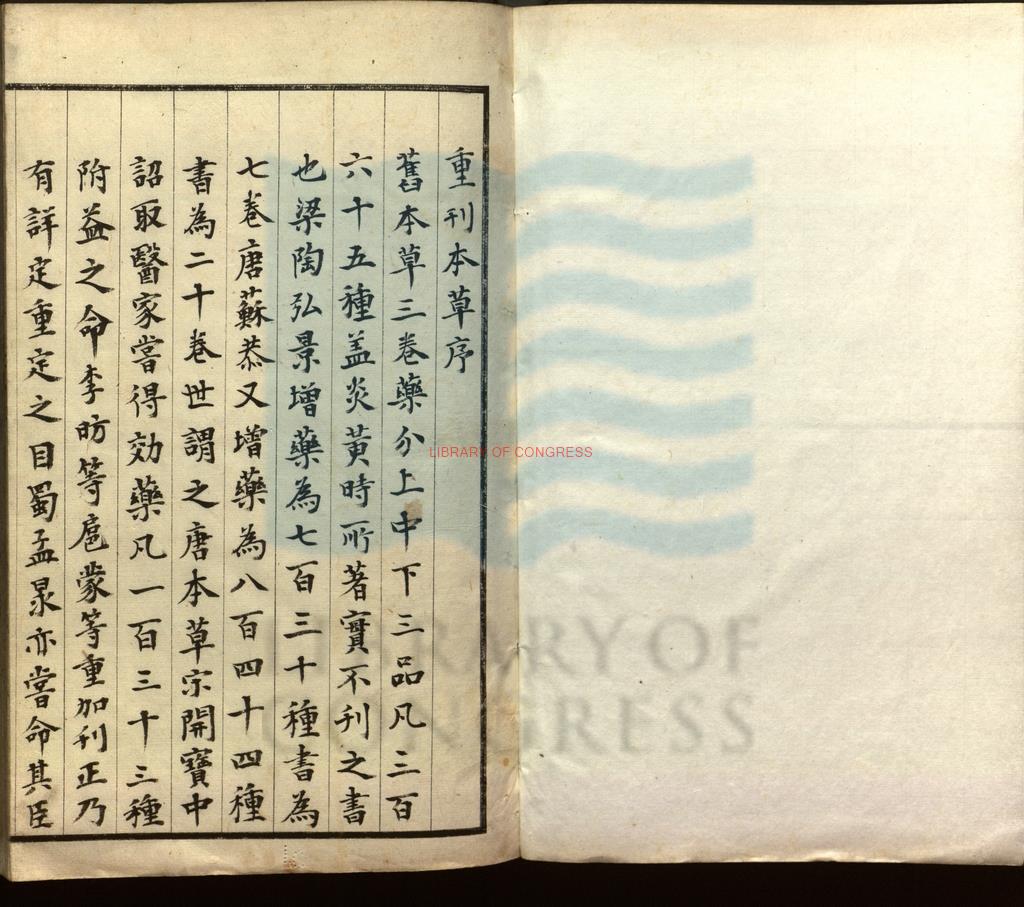 重刊本草序
舊本草三卷藥分上中下三品凡三百
六十五種盖炎黃時所著實不刊之書
也梁陶弘景增藥為七百三十種書為
七卷唐蘇恭又增藥為八百四十四種
書為二十卷世謂之唐本草宗開寶中
詔取醫家嘗得効藥凡一百三十三種
附益之命李昉等扈蒙等重加刊正乃
有詳定重定之目蜀孟㫤亦嘗命其臣
LIBRARY OF CONGRESS
LIBRARY OF
CONGRESS